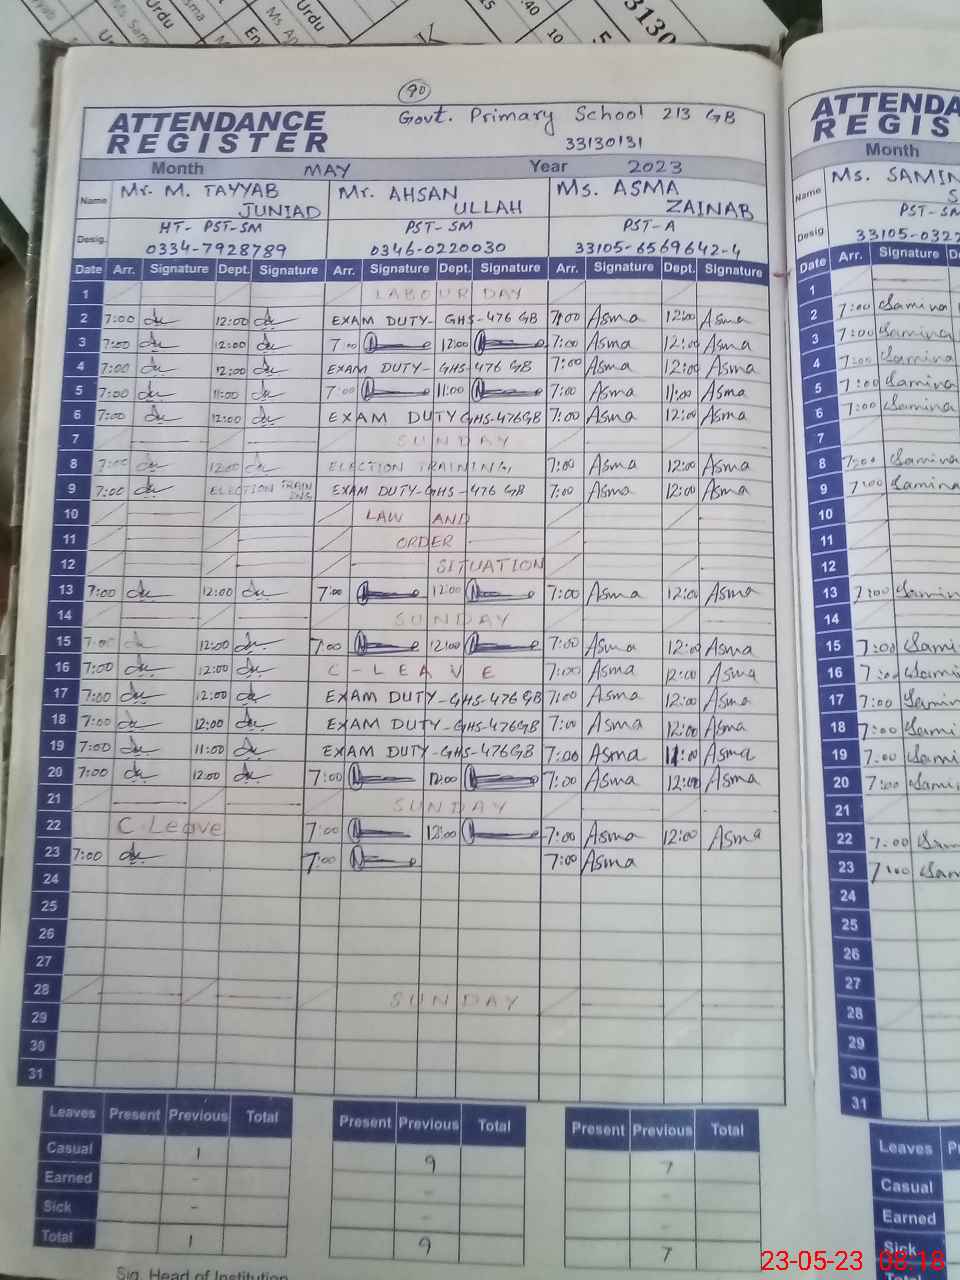 Urdu
Urdu
Ms.
En
10
5
33130
90
ATTENDANCE
REGISTER
Govt. Primary School 213 GB
33130131
Month MAY Year 2023
Name Mr. M. TAYYAB JUNIAD Mr. AHSAN ULLAH Ms. ASMA ZAINAB
Desig. HT- PST-SM PST-SM PST-A
0334-7928789 0346-0220030 33105-6569642-4
Date Arr. Signature Dept. Signature Arr. Signature Dept. Signature Arr. Signature Dept. Signature
1 LABOUR DAY
2 7:00 12:00 EXAM DUTY- GHS-476 GB 7:00 Asma 12:00 Asma
3 7:00 12:00 7:00 12:00 7:00 Asma 12:00 Asma
4 7:00 12:00 EXAM DUTY- GHS-476 GB 7:00 Asma 12:00 Asma
5 7:00 11:00 7:00 11:00 7:00 Asma 11:00 Asma
6 7:00 12:00 EXAM DUTY GHS-476GB 7:00 Asma 12:00 Asma
7 SUNDAY
8 7:00 12:00 ELECTION TRAINING, 7:00 Asma 12:00 Asma
9 7:00 ELECTION TRAINING EXAM DUTY-GHS-476 GB 7:00 Asma 12:00 Asma
10 LAW AND
11 ORDER
12 SITUATION
13 7:00 12:00 7:00 12:00 7:00 Asma 12:00 Asma
14 SUNDAY
15 7:00 12:00 7:00 12:00 7:00 Asma 12:00 Asma
16 7:00 12:00 C-LEAVE 7:00 Asma 12:00 Asma
17 7:00 12:00 EXAM DUTY-GHS-476GB 7:00 Asma 12:00 Asma
18 7:00 12:00 EXAM DUTY-GHS-476GB 7:00 Asma 12:00 Asma
19 7:00 11:00 EXAM DUTY-GHS-476GB 7:00 Asma 11:00 Asma
20 7:00 12:00 7:00 12:00 7:00 Asma 12:00 Asma
21 SUNDAY
22 C Leave 7:00 12:00 7:00 Asma 12:00 Asma
23 7:00 7:00 7:00 Asma
24
25
26
27
28 SUNDAY
29
30
31
Leaves Present Previous Total Present Previous Total Present Previous Total
Casual 1 9 7
Earned - -
Sick - -
Total 1 9 7
Sig. Head of Institution
ATTENDA
REGIS
Month
Name Ms. SAMIN
Desig. PST-SM
33105-0322
Date Arr. Signature
1
2 7:00 Samina
3 7:00 Samina
4 7:00 Samina
5 7:00 Samina
6 7:00 Samina
7
8 7:00 Samina
9 7:00 Samina
10
11
12
13 7:00 Samin
14
15 7:00 Sami
16 7:00 Sami
17 7:00 Samin
18 7:00 Sami
19 7:00 Sami
20 7:00 Sami
21
22 7:00 Sam
23 7:00 Sam
24
25
26
27
28
29
30
31
Leaves
Casual
Earned
Sick
Total
23-05-23 08:18